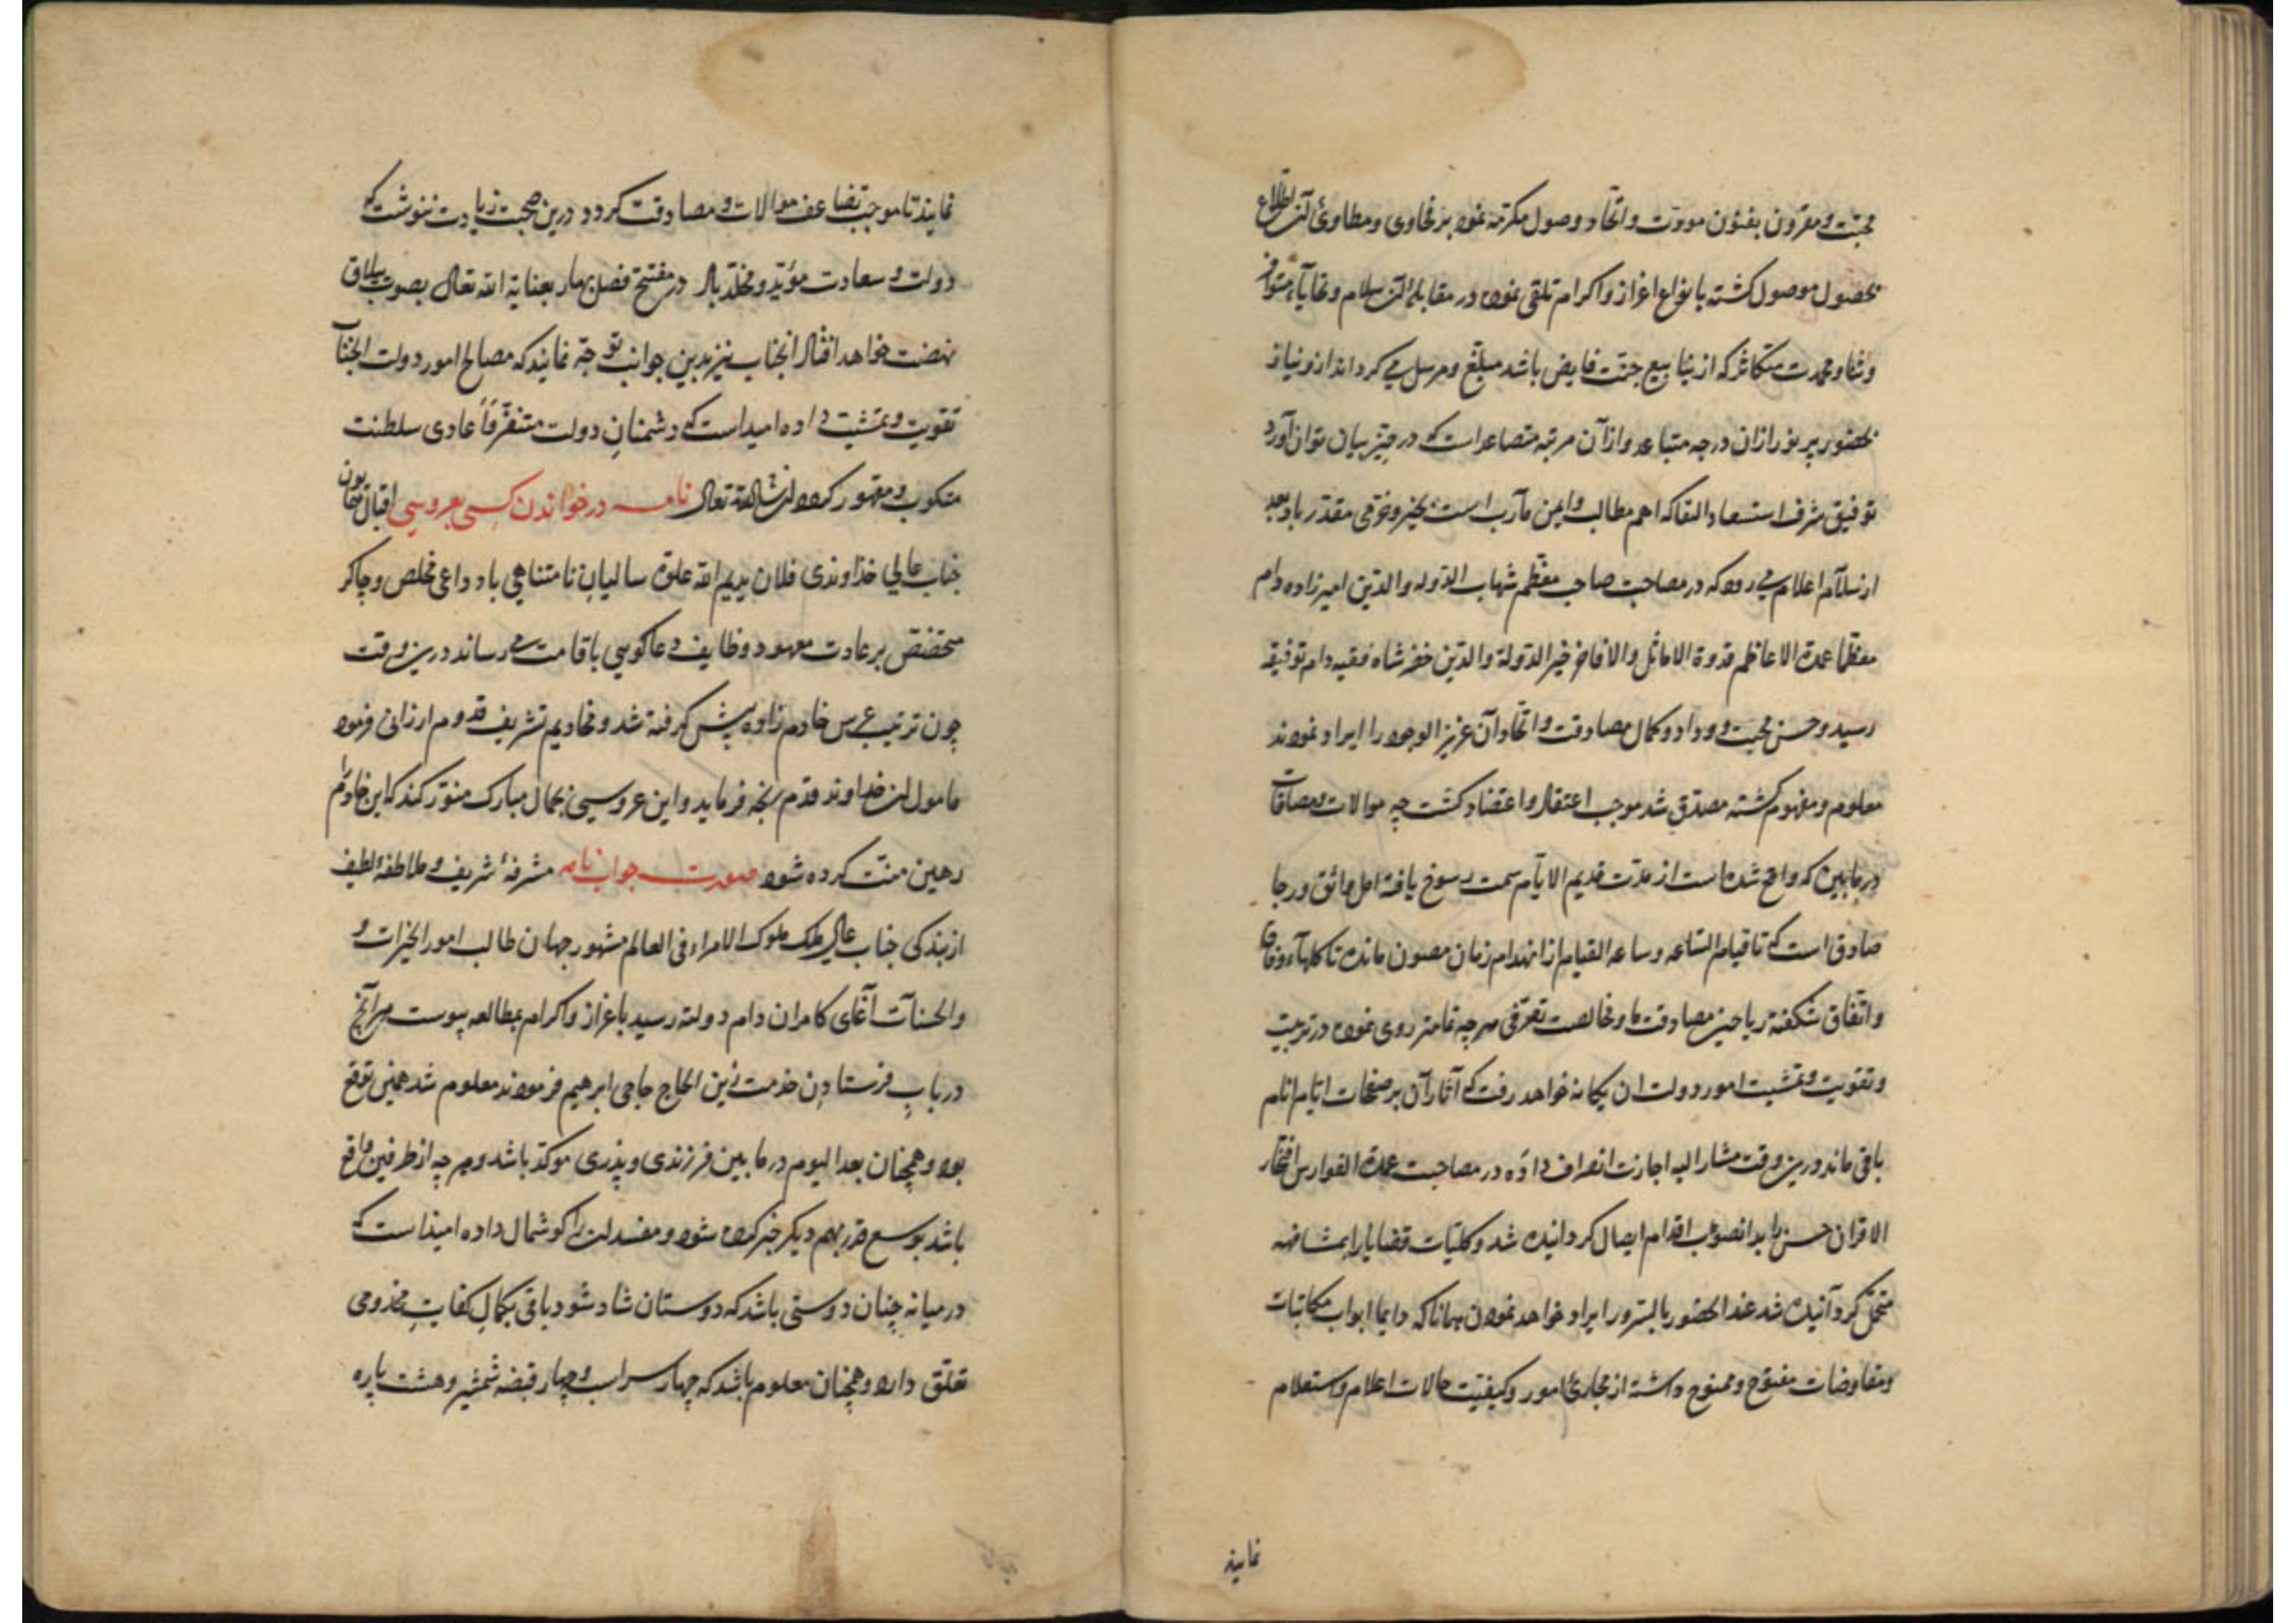 محبت و مقرون بفنون مودت و اتحاد وصول مکرمه نموده بر فحاوی و مطاوی آن اطلاع
بحصول موصول کشته بانواع اعزاز و اکرام تلقی نموده در مقابله آن سلام و تحایاء متوافر
و ثنا و محمدت متکاثر که از ینابیع جنت فایض باشد مبلغ و مرسل می کرداند آرزو نیاز
بحضور پر نور ازان درجه متباعد و از آن مرتبه متصاعد است که در حیز بیان توان آورد
توفیق شرف استسعاد التقا که اهم مطالب و ایمن مآرب است بخیر و خرمی مقدر باد بعد
از سلام اعلام می رود که در مصاحبت صاحب معظم شهاب الدوله و الدین امیرزاده دام
معظما عمدة الاعاظم قدوة الاماثل و الافاخر فخر الدولة و الدین خضر شاه فقیه دام توفیقه
رسید و حسن محبت و وداد و کمال مصادقت و اتحاد آن عزیز الوجود را ایراد نمودند
معلوم و مفهوم کشته مصدق شد موجب اعتقاد و اعتضاد کشت چه موالات و مصافات
در مابین که واقع شده است از مدت قدیم الایام سمت رسوخ یافته امل واثق و رجا
صادق است که تا قیام الساعه و ساعه القیام از انهدام زمان مصون مانده تا کلهاء وفاق
و اتفاق شکفته ریاحین مصادقت ما و مخالصت تعرفی هرچه تمامتر روی نموده در تربیت
و تقویت و تمشیت امور دولت ان یکانه خواهد رفت که آثار آن بر صفحات ایام انام
باقی ماند درین وقت مشار الیه اجازت انصراف داده در مصاحبت عمدة الفوارس افتخار
الاقران حسن بابدانصوب اقدام ایصال کردانیده شد و کلیات قضایا را بمشافهه
متحمل کردانیده شد عند الحضور بالسرور ایراد خواهد نمودن همانا که دایما ابواب مکاتبات
و مفاوضات مفتوح و ممنوح داشته از مجاری امور و کیفیت حالات اعلام و استعلام
نمایند
نمایند تا موجب تضاعف موالات و مصادقت کردد درین صحبت زیادت ننوشت که
دولت و سعادت مؤید و مخلد باد در مفتتح فصل بهار بعنایة الله تعالی بصوب ییلاق
نهضت خواهد افتاد انجناب نیز بدین جوانب توجه نمایند که مصالح امور دولت الجناب
تقویت و تمشیت داده امید است که دشمنان دولت متفرقا عادی سلطنت
منکوب و مقهور کردد ان شاء الله تعالی نامه در خواندن کسی بعروسی اقبال همایون
جناب عالی خداوندی فلان یدیم الله علوه سالیان نامتناهی باد داعی مخلص و چاکر
متخصص بر عادت معهود وظایف دعاکویی باقامت می رساند درین وقت
چون ترتیب عرس خادم زاده پیش کرفته شد و مخادیم تشریف قدوم ارزانی فرموده
مامول ان خداوند قدم رنجه فرماید و این عروسی بجمال مبارک منور کند که این خادم را
رهین منت کرده شود صورت جواب نامه مشرفه شریف و ملاطفه لطیف
از بندکی جناب عالی ملک ملوک الامراء فی العالم مشهور جهان طالب امور الخیرات و
والحسنات آغای کامران دام دولته رسید باعزاز و اکرام بمطالعه پیوست هر آنچ
در باب فرستادن خدمت زین الحاج حاجی ابرهیم فرمودند معلوم شد همین توقع
بود و همچنان بعد الیوم در مابین فرزندی و پدری موکد باشد و هرچه از طرفین واقع
باشد بوسع قدر بهم دیکر خبر کرده شود و مفسدان را کوشمال داده امیذ است که
در میانه چنان دوستی باشد که دوستان شاد شود باقی بکمال کفایت مخذومی
تعلق دارد و همچنان معلوم باشد که چهار سر اسب و چهار قبضه شمشیر و هشت پاره